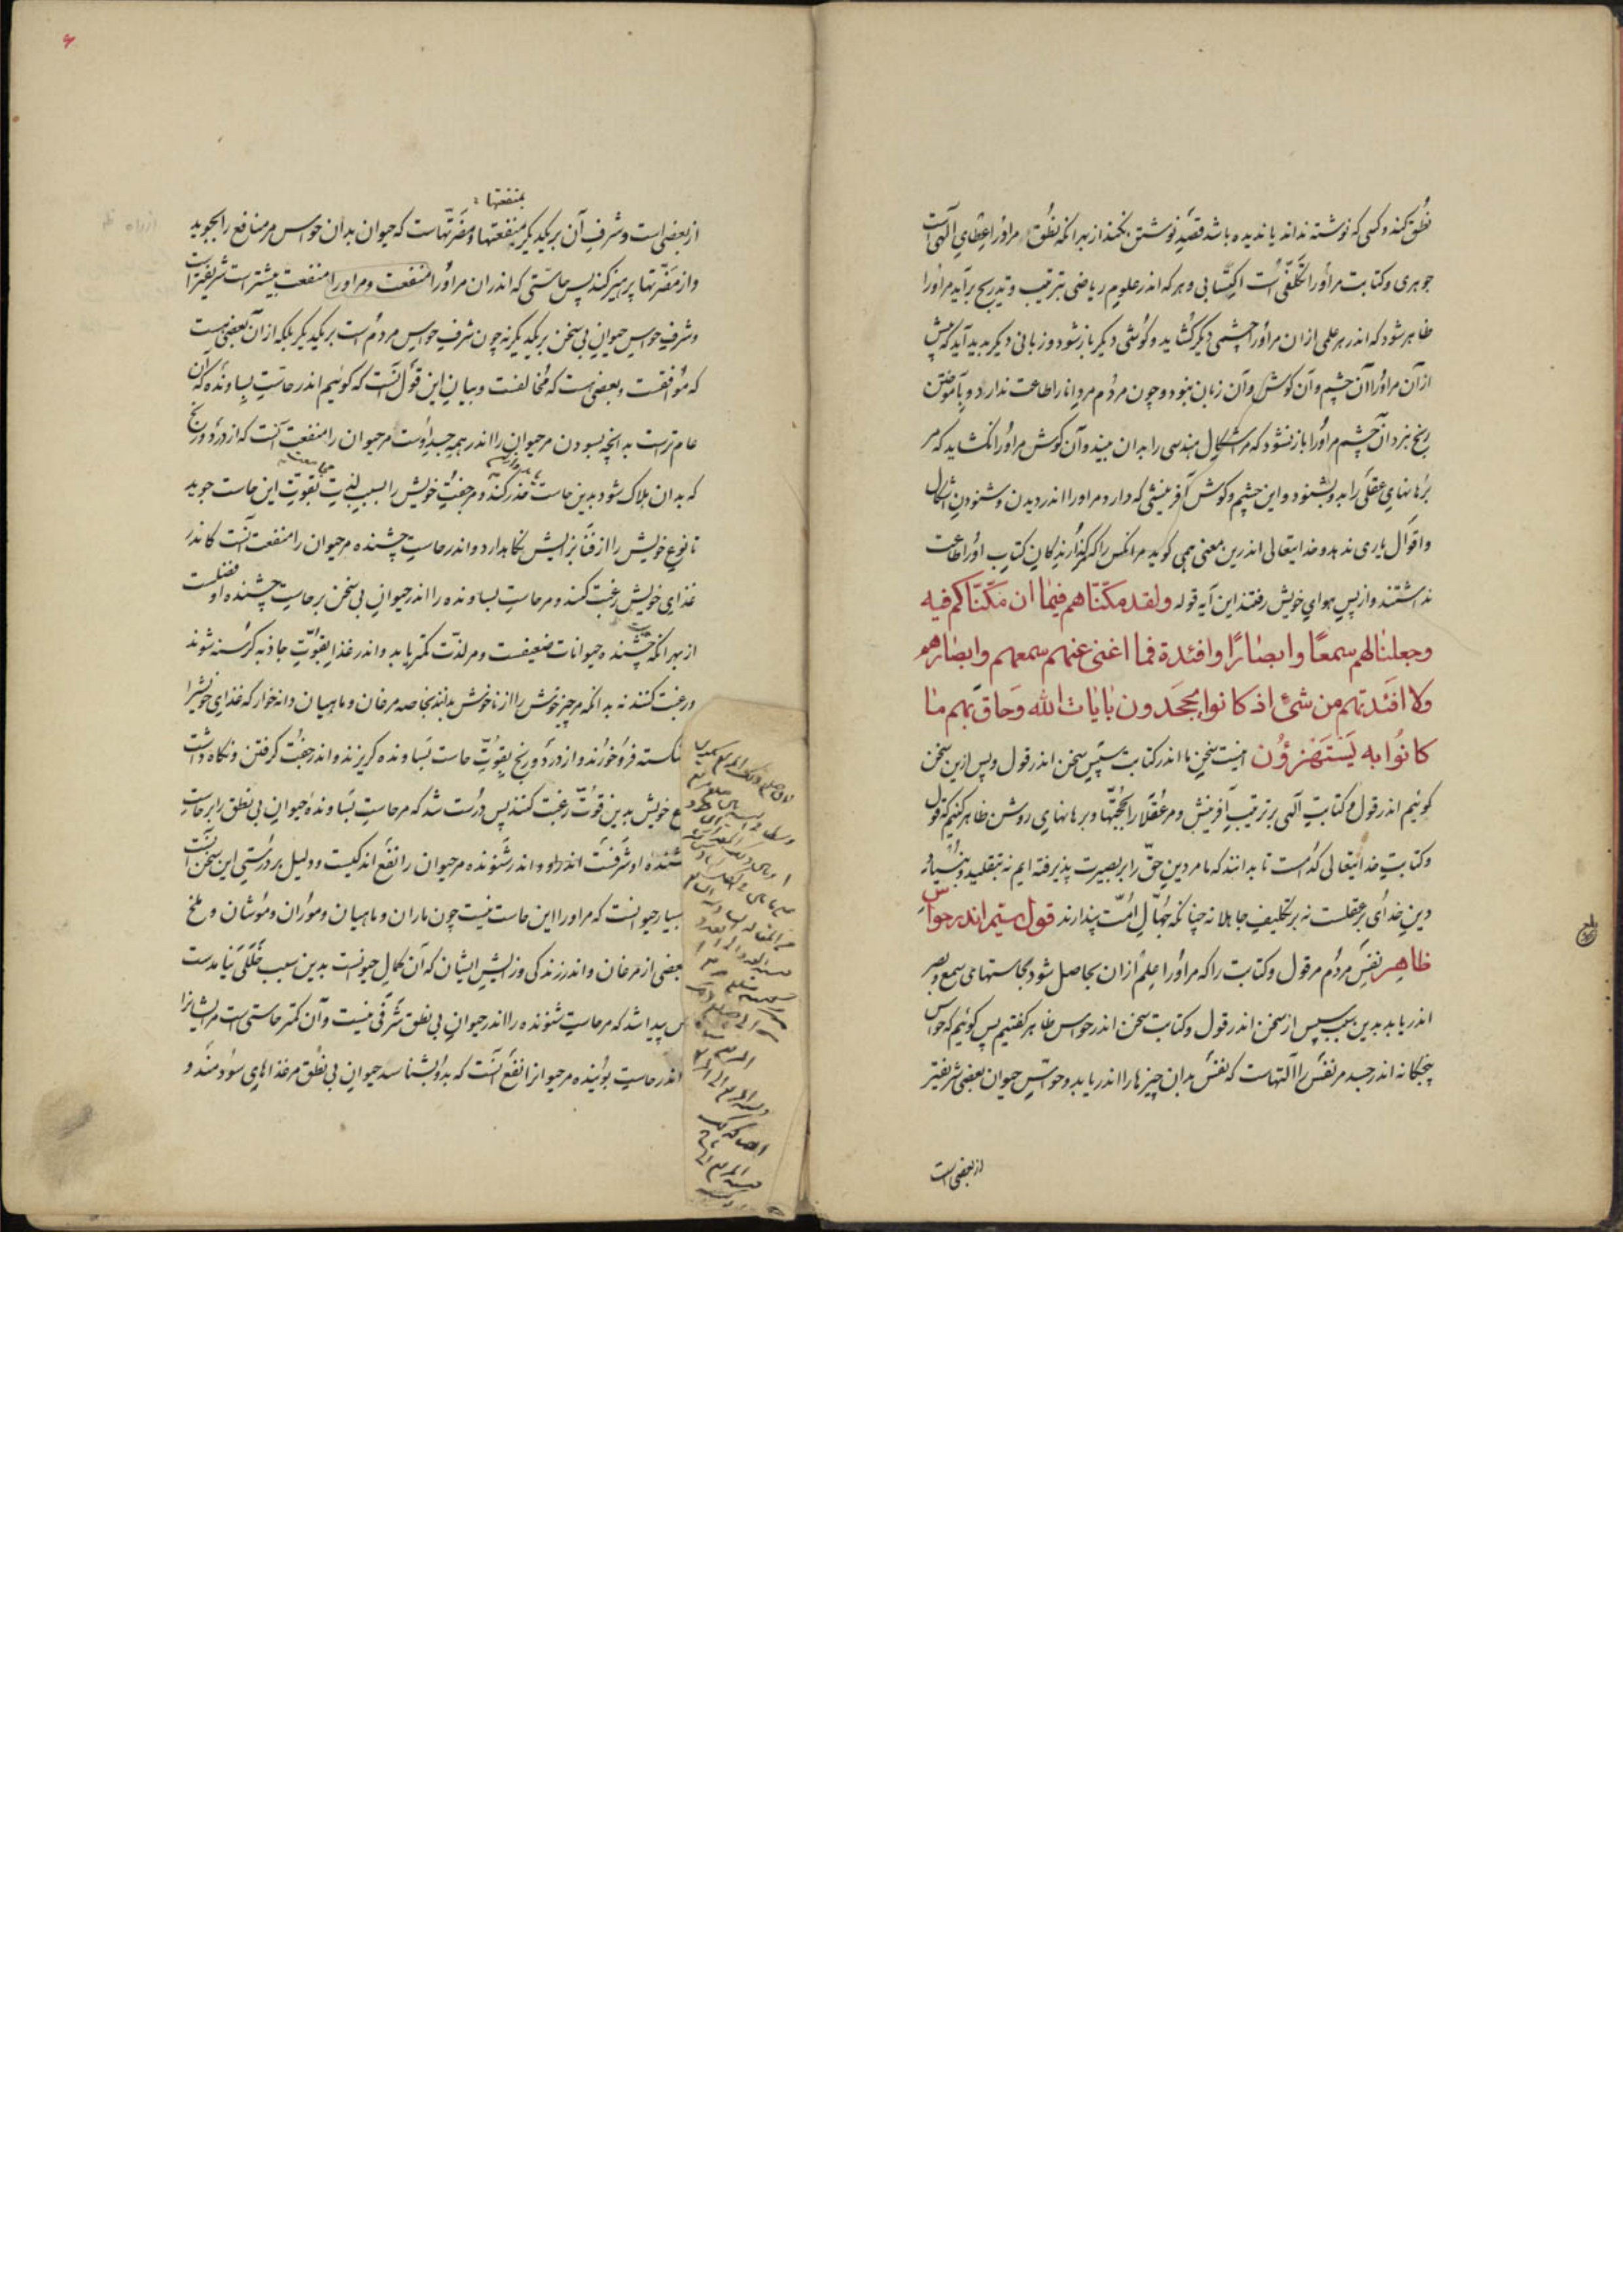 نطق کند و کسی که نوشته نداند یا ندیده باشد قصد نوشتن نکند از بهر آنکه نطق مر او را عطای الهی است
جوهری و کتابت مر او را تکلفی است اکتسابی و هر که اندر علوم ریاضی بترتیب و تدریج برآید مر او را
ظاهر شود که اندر هر علمی ازان مر او را چشمی دیگر گشاید و گوشی دیگر باز شود و زبانی دیگر پدید آید که پیش
از آن مر او را آن چشم و آن گوش و آن زبان نبود و چون مردم مر دانا را طاعت ندارد و بآموختن
رنج نبرد آن چشم مر او را باز نشود که مر اشکال هندسی را بدان بیند و آن گوش مر او را نگشاید که مر
برهانهای عقلی را بدو بشنود و این چشم و گوش آفرینشی که دارد مر او را اندر دیدن و شنودن اشکال
و اقوال یاری ندهد و خدایتعالی اندرین معنی همی گوید مر آنکس را که گذارندگان کتاب او را طاعت
نداشتند و از پس هوای خویش رفتند این آیه قوله ولقد مکّنّاهم فیما ان مکّنّاکم فیه
وجعلنا لهم سمعًا وابصارًا وافئدة فما اغنی عنهم سمعهم ولا ابصارهم
ولا افئدتهم من شئ اذ کانوا یجحدون بایات الله وحاق بهم ما
کانوا به یستهزؤن اینست سخن ما اندر کتابت سپس سخن اندر قول و پس ازین سخن
گوئیم اندر قول و کتابت الهی بر ترتیب آفرینش و مر عقلا را بحجتها و برهانهای روشن ظاهر کنیم که قول
و کتابت خدایتعالی کدامست تا بدانند که ما مر دین حق را بر بصیرت پذیرفته ایم نه بتقلید و بنیاد
دین خدای بر عقلست نه بر تکلیف جاهلانه چنانکه جهال امت پندارند قول سیم اندر حواس
ظاهر نفس مردم مر قول و کتابت را که مر او را علم ازان بحاصل شود بحاستهای سمع و بصر
اندر یابد بدین سبب سپس از سخن اندر قول و کتابت سخن اندر حواس ظاهر گفتیم پس گوئیم که حواس
پنجگانه اندر جسد مر نفس را آلتهاست که نفس بدان چیزها را اندر یابد و حواس حیوان بعضی شریفتر
از بعضی است
۶
بمنفعتها
از بعضی است و شرف آن بر یکدیگر بمنفعتها و مضرتهاست که حیوان بدان حواس مر منافع را بجوید
و از مضرتها پرهیز کند پس حاستی که اندران مر او را منفعت و مر او را منفعت بیشتر است شریفتر است
و شرف حواس حیوان بی سخن بر یکدیگر نه چون شرف حواس مردم است بر یکدیگر بلکه از آن بعضی هست
که موافقست و بعضی هست که مخالفست و بیان این قول آنست که گوئیم اندر حاست بساونده که آن
عام ترست به آنچه بسودن مر حیوان را اندر همه جسد اوست مر حیوان را منفعت آنست که از درد و رنج
که بدان هلاک شود بدین حاست حذر کند و مر جفت خویش را بسبب لذت بقوت این حاست جوید
تا نوع خویش را از فنا بزایش نگاهدارد و اندر حاست چشنده مر حیوان را منفعت آنست کاندر
غذای خویش رغبت کند و مر حاست بساونده را اندر حیوان بی سخن بر حاست چشنده او فضلست
از بهر آنکه چشنده حیوانات ضعیفست و مر لذت کمتر یابد و اندر غذا بقوت جاذبه گرسنه شوند
و رغبت کنند نه بدانکه مر چیز خوش را از ناخوش بدانند بخاصه مرغان و ماهیان دانه خوار که غذای خویش را
شکسته فرو خورند و از درد و رنج بقوت حاست بساونده گریزند و اندر جفت گرفتن و نگاه داشت
خویش بدین قوت رغبت کنند پس درست شد که مر حاست بساونده حیوان بی نطق را بر حاست
چشنده او شرفست اندر او و اندر شنونده مر حیوان را نفع اندکیست و دلیل بر درستی این سخن آنست
بسیار حیوانست که مر او را این حاست نیست چون ماران و ماهیان و موران و موشان و ملخ
بعضی از مرغان و اندر زندگی و زایش ایشان که آن کمال حیوانست بدین سبب خللی نیامدست
پس پیدا شد که مر حاست شنونده را اندر حیوان بی نطق شرفی نیست و آن کمتر حاستی است مر ایشانرا
اندر حاست بوینده مر حیوانرا نفع آنست که بدو بشناسد حیوان بی نطق مر غذاهای سودمند و